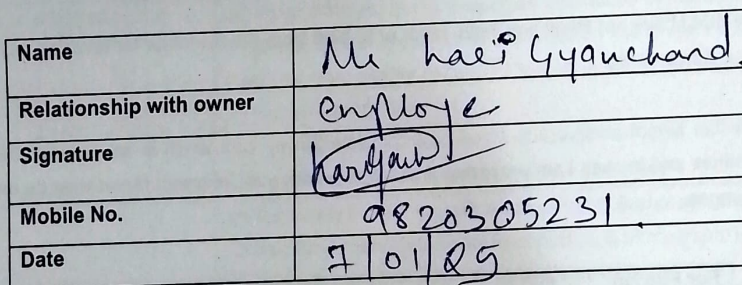 Name Mr hari Gyanchand.
Relationship with owner employe
Signature
Mobile No. 9820305231.
Date 7/01/25